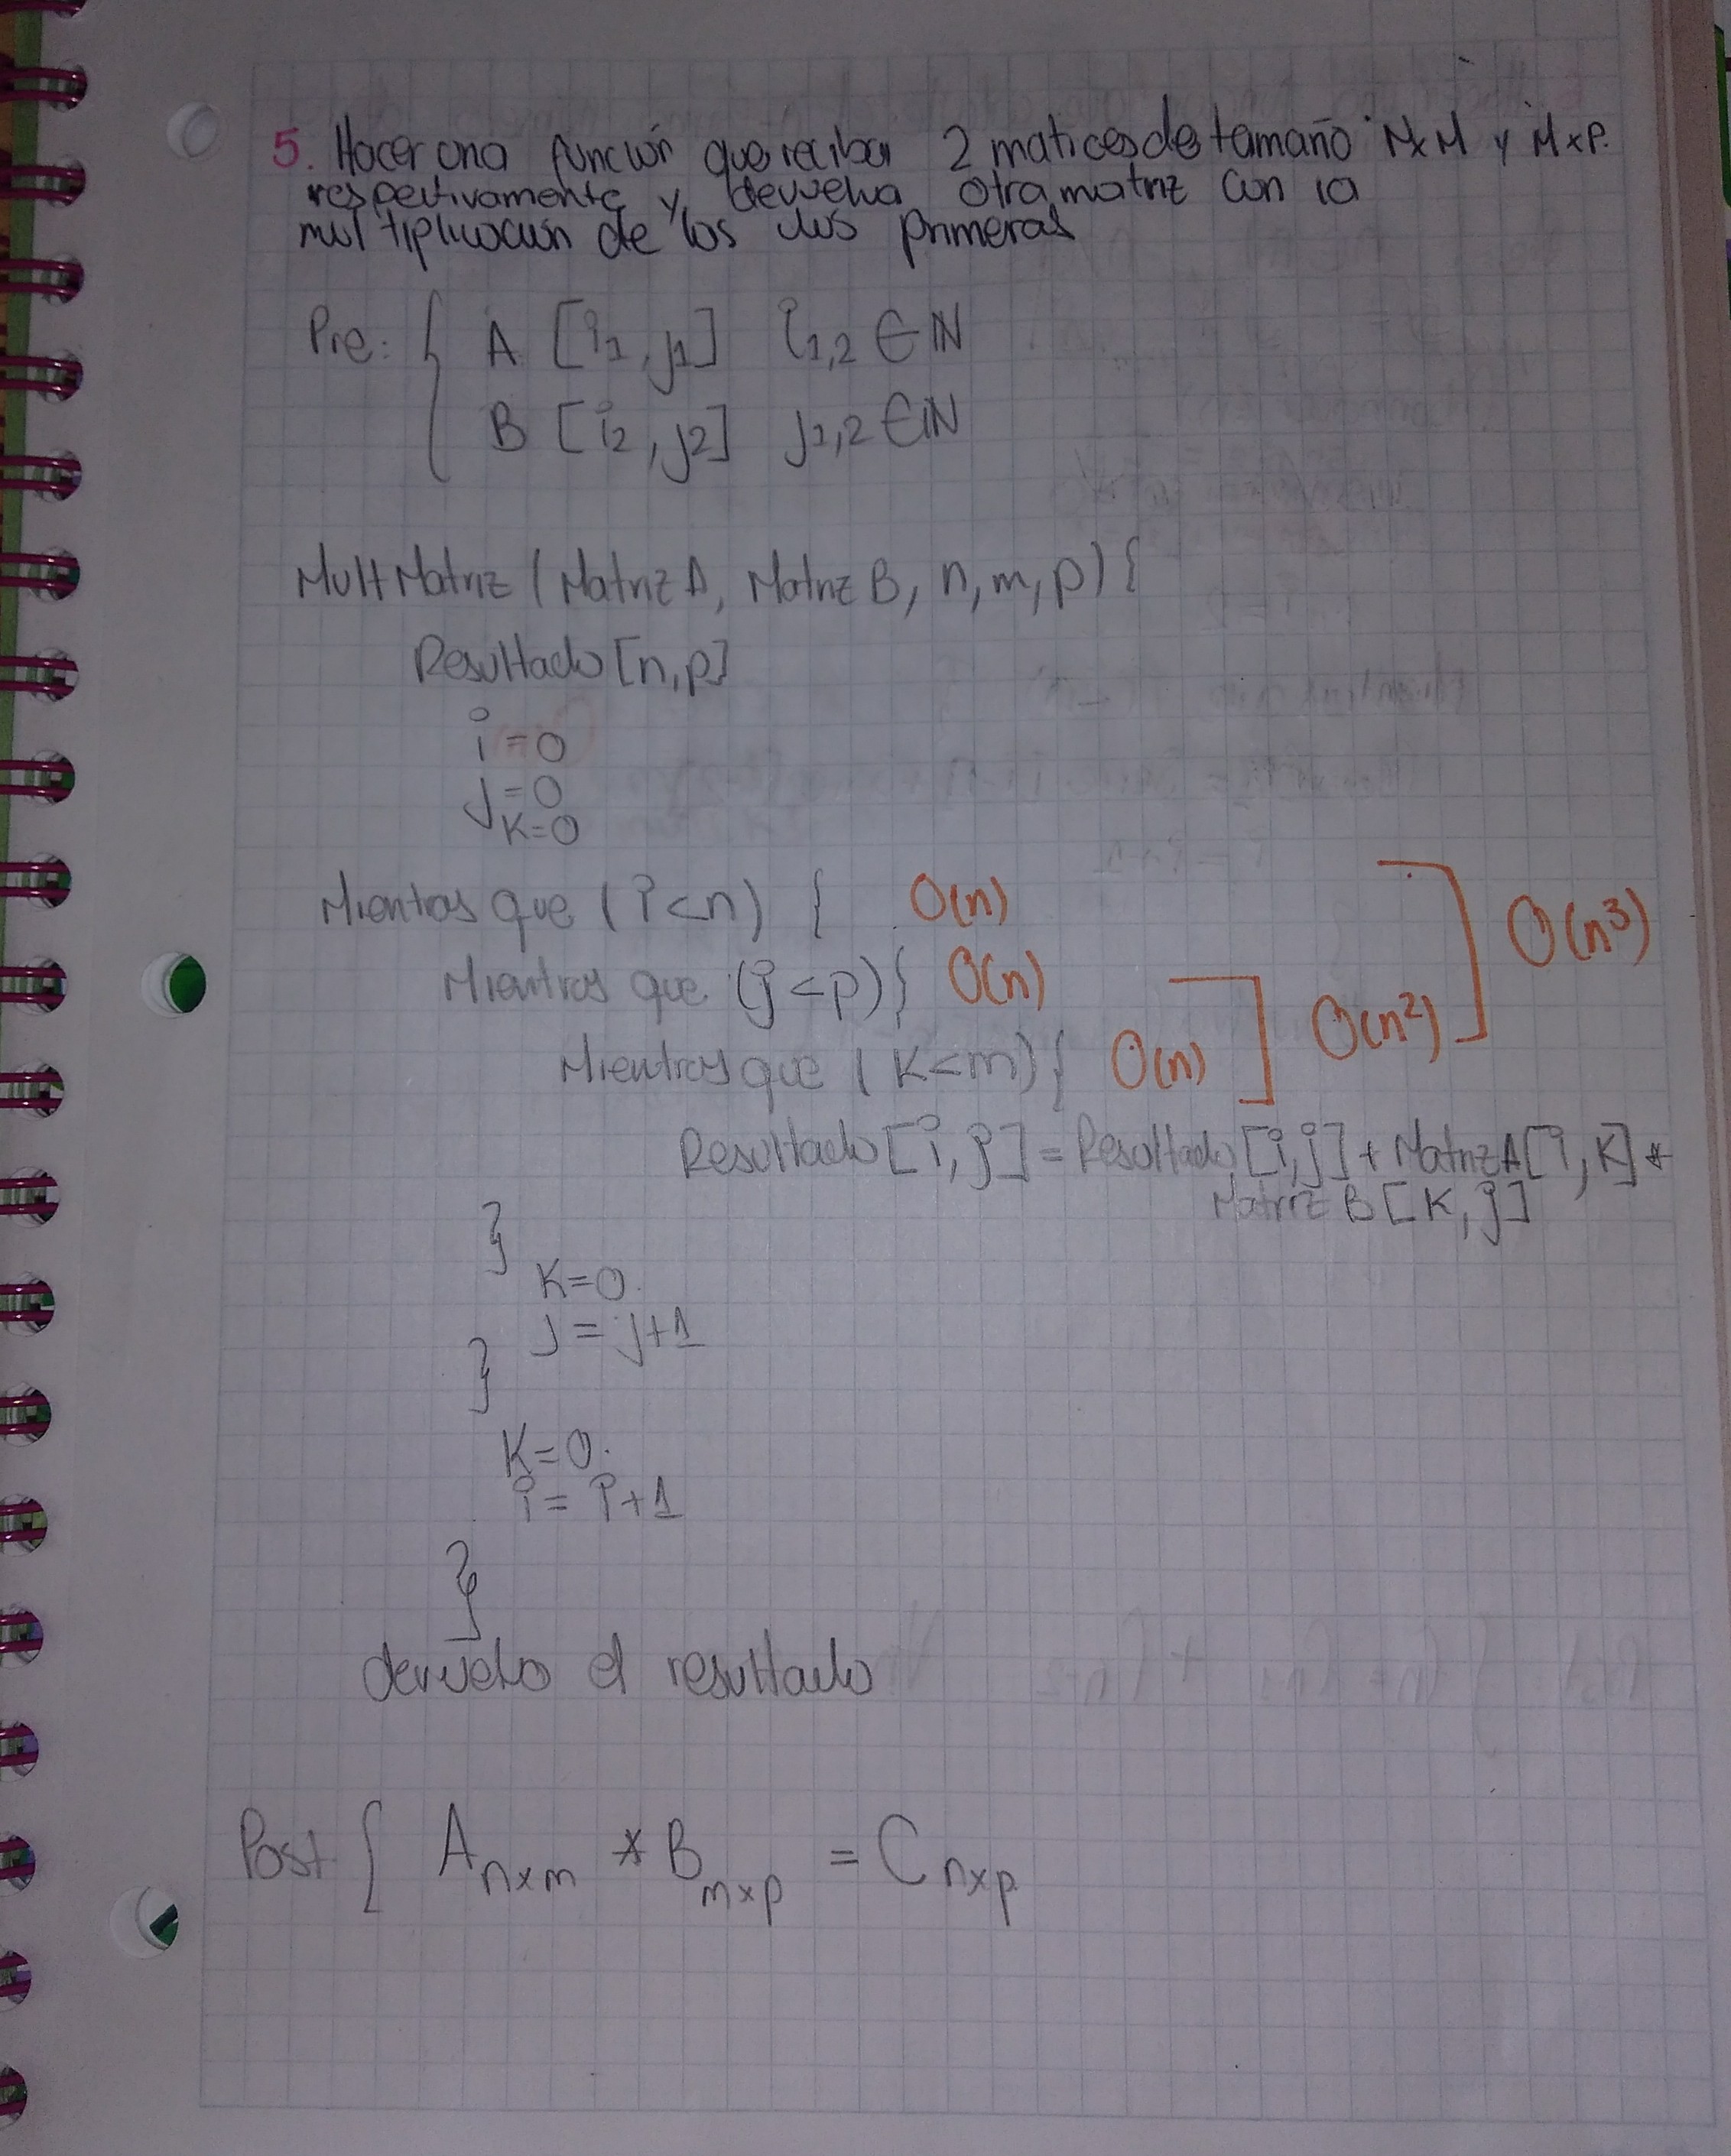 5. Hacer una función que reciba 2 matices de tamaño NxM y MxP.
respectivamente y devuelva otra matriz con la
multiplicación de las dos primeras
Pre: { A [i1, j1] i1,2 ∈ ℕ
B [i2, j2] j1,2 ∈ ℕ
MultMatriz (Matriz A, Matriz B, n, m, p) {
Resultado [n,p]
i=0
j=0
K=0
Mientras que (i<n) { O(n)
O(n³)
Mientras que (j<p){ O(n)
O(n²)
Mientras que (K<m){ O(n)
Resultado [i, j] = Resultado [i,j] + Matriz A [i, K] *
Matriz B [K, j]
}
K=0.
j = j+1
}
K=0.
i = i+1
}
devuelvo el resultado
Post { A nxm * B mxp = C nxp